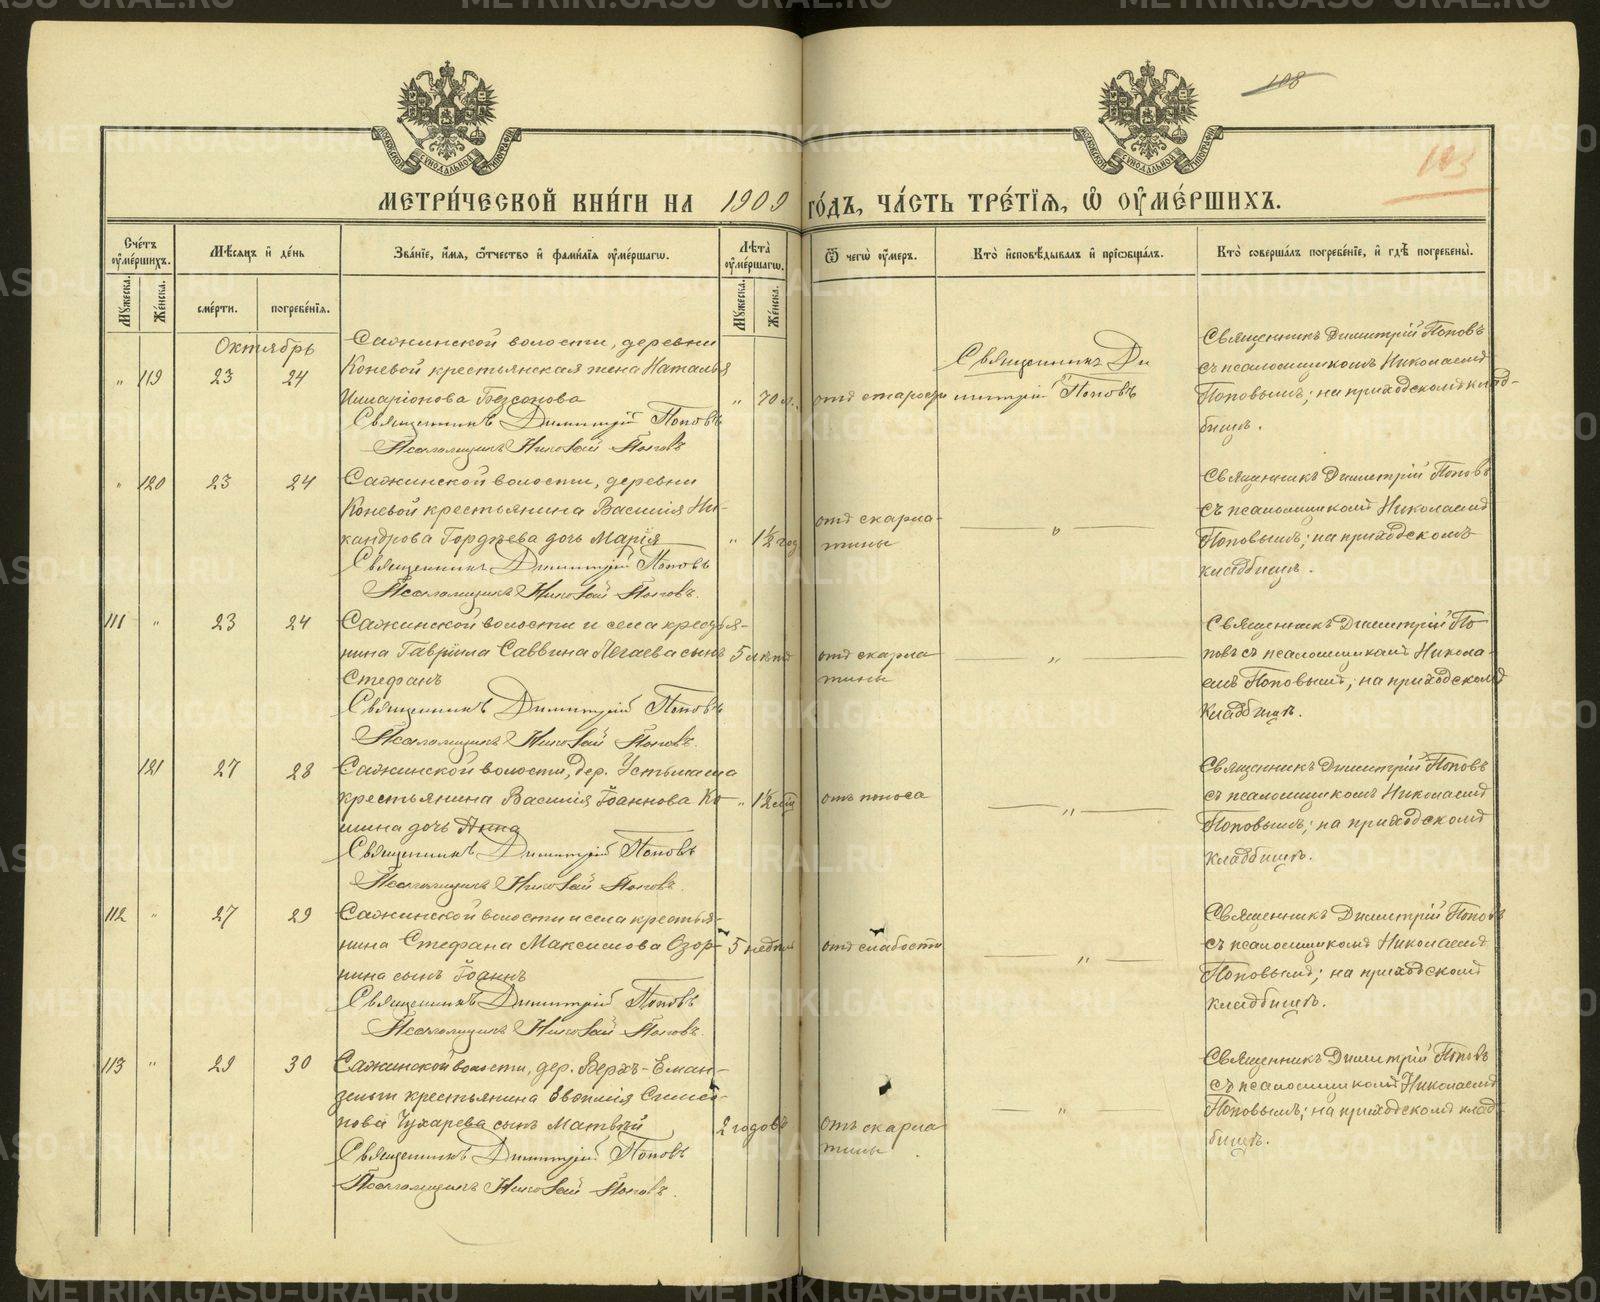 108
103
МЕТРИ́ЧЕСКОЙ КНИ́ГИ НА 1909 ГО́ДЪ, ЧА́СТЬ ТРЕ́ТІѦ, Ѡ ОУМЕ́РШИХЪ.
Сче́тъ оумéршихъ.
Мужеска.
Же́нска.
Мѣсяцъ и де́нь
сме́рти.
погребе́нія.
Зва́ніе, и́мя, ѻ҆́тчество и҆ фами́лія оумéршагѡ.
Лѣта̀ оумéршагѡ.
Мужеска.
Же́нска.
Ѿ чегѡ̀ оу́меръ.
Кто̀ и҆сповѣ́дывалъ и҆ пріѡбща́лъ.
Кто̀ соверша́лъ погребе́ніе, и҆ гдѣ̀ погребены̀.
Октябрь
" 119 23 24
Сажинской волости, деревни
Коневой крестьянская жена Наталья
Иларіонова Берсонова
Священникъ Димитрій Поповъ
Псаломщикъ Николай Поповъ
" 70 л.
отъ старости
Священникъ Ди
митрій Поповъ
Священникъ Димитрій Поповъ
съ псаломщикомъ Николаемъ
Поповымъ; на приходскомъ клад-
бищѣ.
" 120 23 24
Сажинской волости, деревни
Коневой крестьянина Василія Ни-
кандрова Гордѣева дочь Марія
Священникъ Димитрій Поповъ
Псаломщикъ Николай Поповъ.
" 1½ год
отъ скарла-
тины
"
Священникъ Димитрій Поповъ
съ псаломщикомъ Николаемъ
Поповымъ; на приходскомъ
кладбищѣ.
111 " 23 24
Сажинской волости и села крестья-
нина Гавріила Саввина Пегаева сынъ
Стефанъ
Священникъ Димитрій Поповъ
Псаломщикъ Николай Поповъ.
5 лѣтъ
отъ скарла
тины
"
Священникъ Димитрій По
повъ съ псаломщикомъ Никола-
емъ Поповымъ; на приходскомъ
кладбищѣ.
121 27 28
Сажинской волости, дер. Устьмаша
крестьянина Василія Іоаннова Ко
шина дочь Анна
Священникъ Димитрій Поповъ
Псаломщикъ Николай Поповъ.
" 1½ мѣс
отъ поноса
"
Священникъ Димитрій Поповъ
съ псаломщикомъ Николаемъ
Поповымъ; на приходскомъ
кладбищѣ.
112 " 27 29
Сажинской волости и села крестья-
нина Стефана Максимова Озор-
нина сынъ Іоаннъ
Священникъ Димитрій Поповъ
Псаломщикъ Николай Поповъ.
5 недѣль
отъ слабости
"
Священникъ Димитрій Поповъ
съ псаломщикомъ Николаемъ
Поповымъ; на приходскомъ
кладбищѣ.
113 " 29 30
Сажинской волости, дер. Верхъ-Еман-
зельги крестьянина Евѳимія Симео-
нова Чухарева сынъ Матвѣй
Священникъ Димитрій Поповъ
Псаломщикъ Николай Поповъ.
2 годовъ
отъ скарла
тины
"
Священникъ Димитрій Поповъ
съ псаломщикомъ Николаемъ
Поповымъ; на приходскомъ клад-
бищѣ.
METRIKI.GASO-URAL.RU